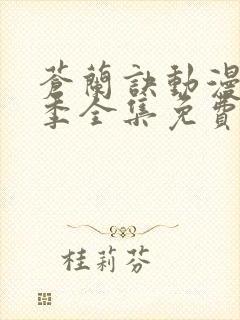 蒼蘭訣動漫
季全集免費
桂莉芬